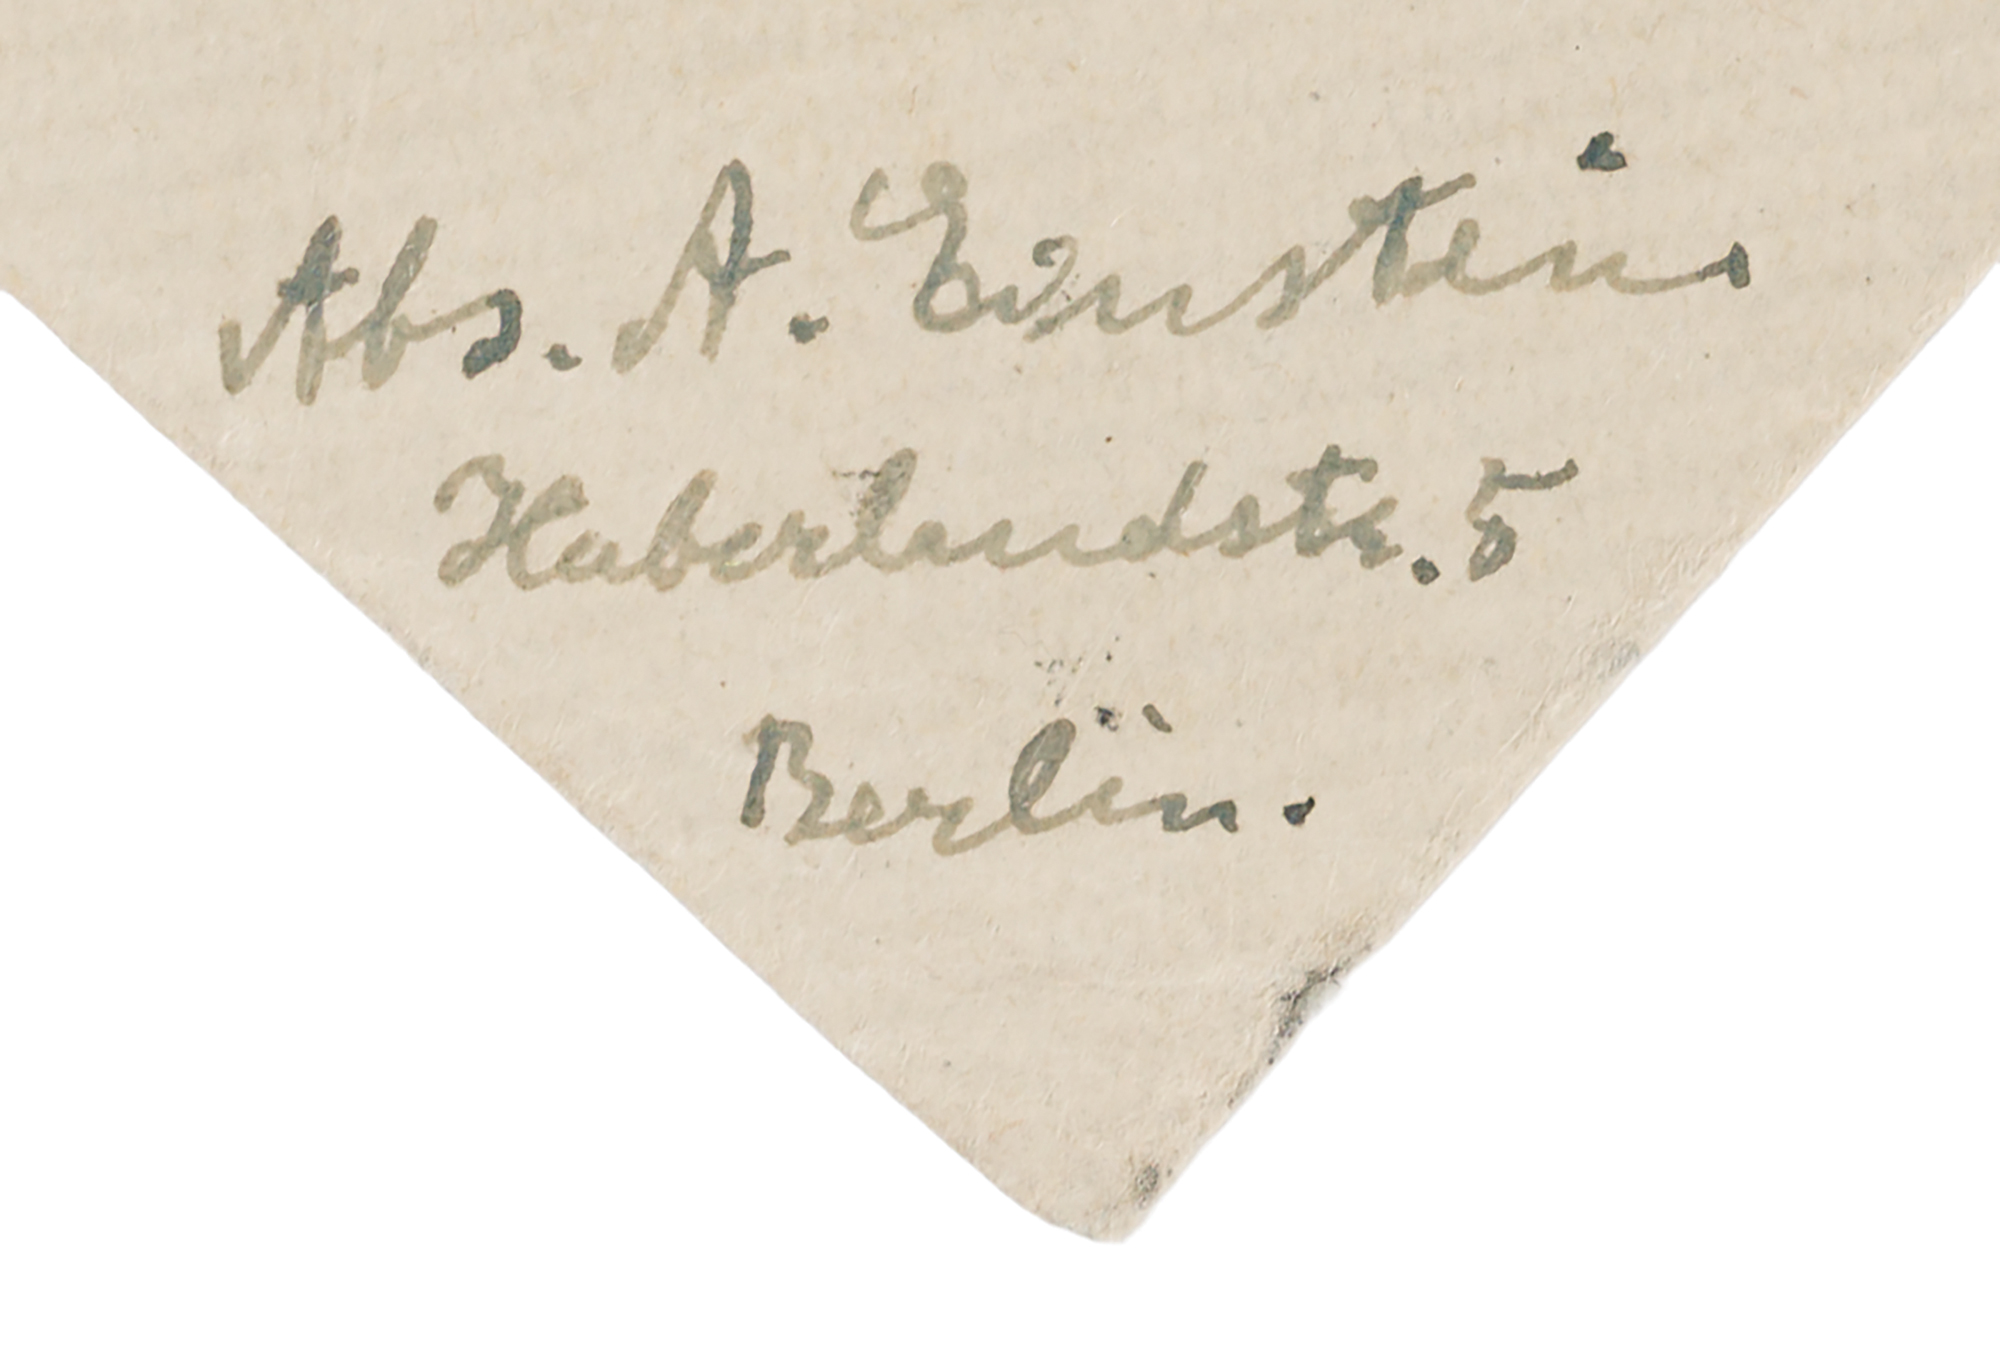 Abs. A. Einstein.
Haberlandstr. 5
Berlin.